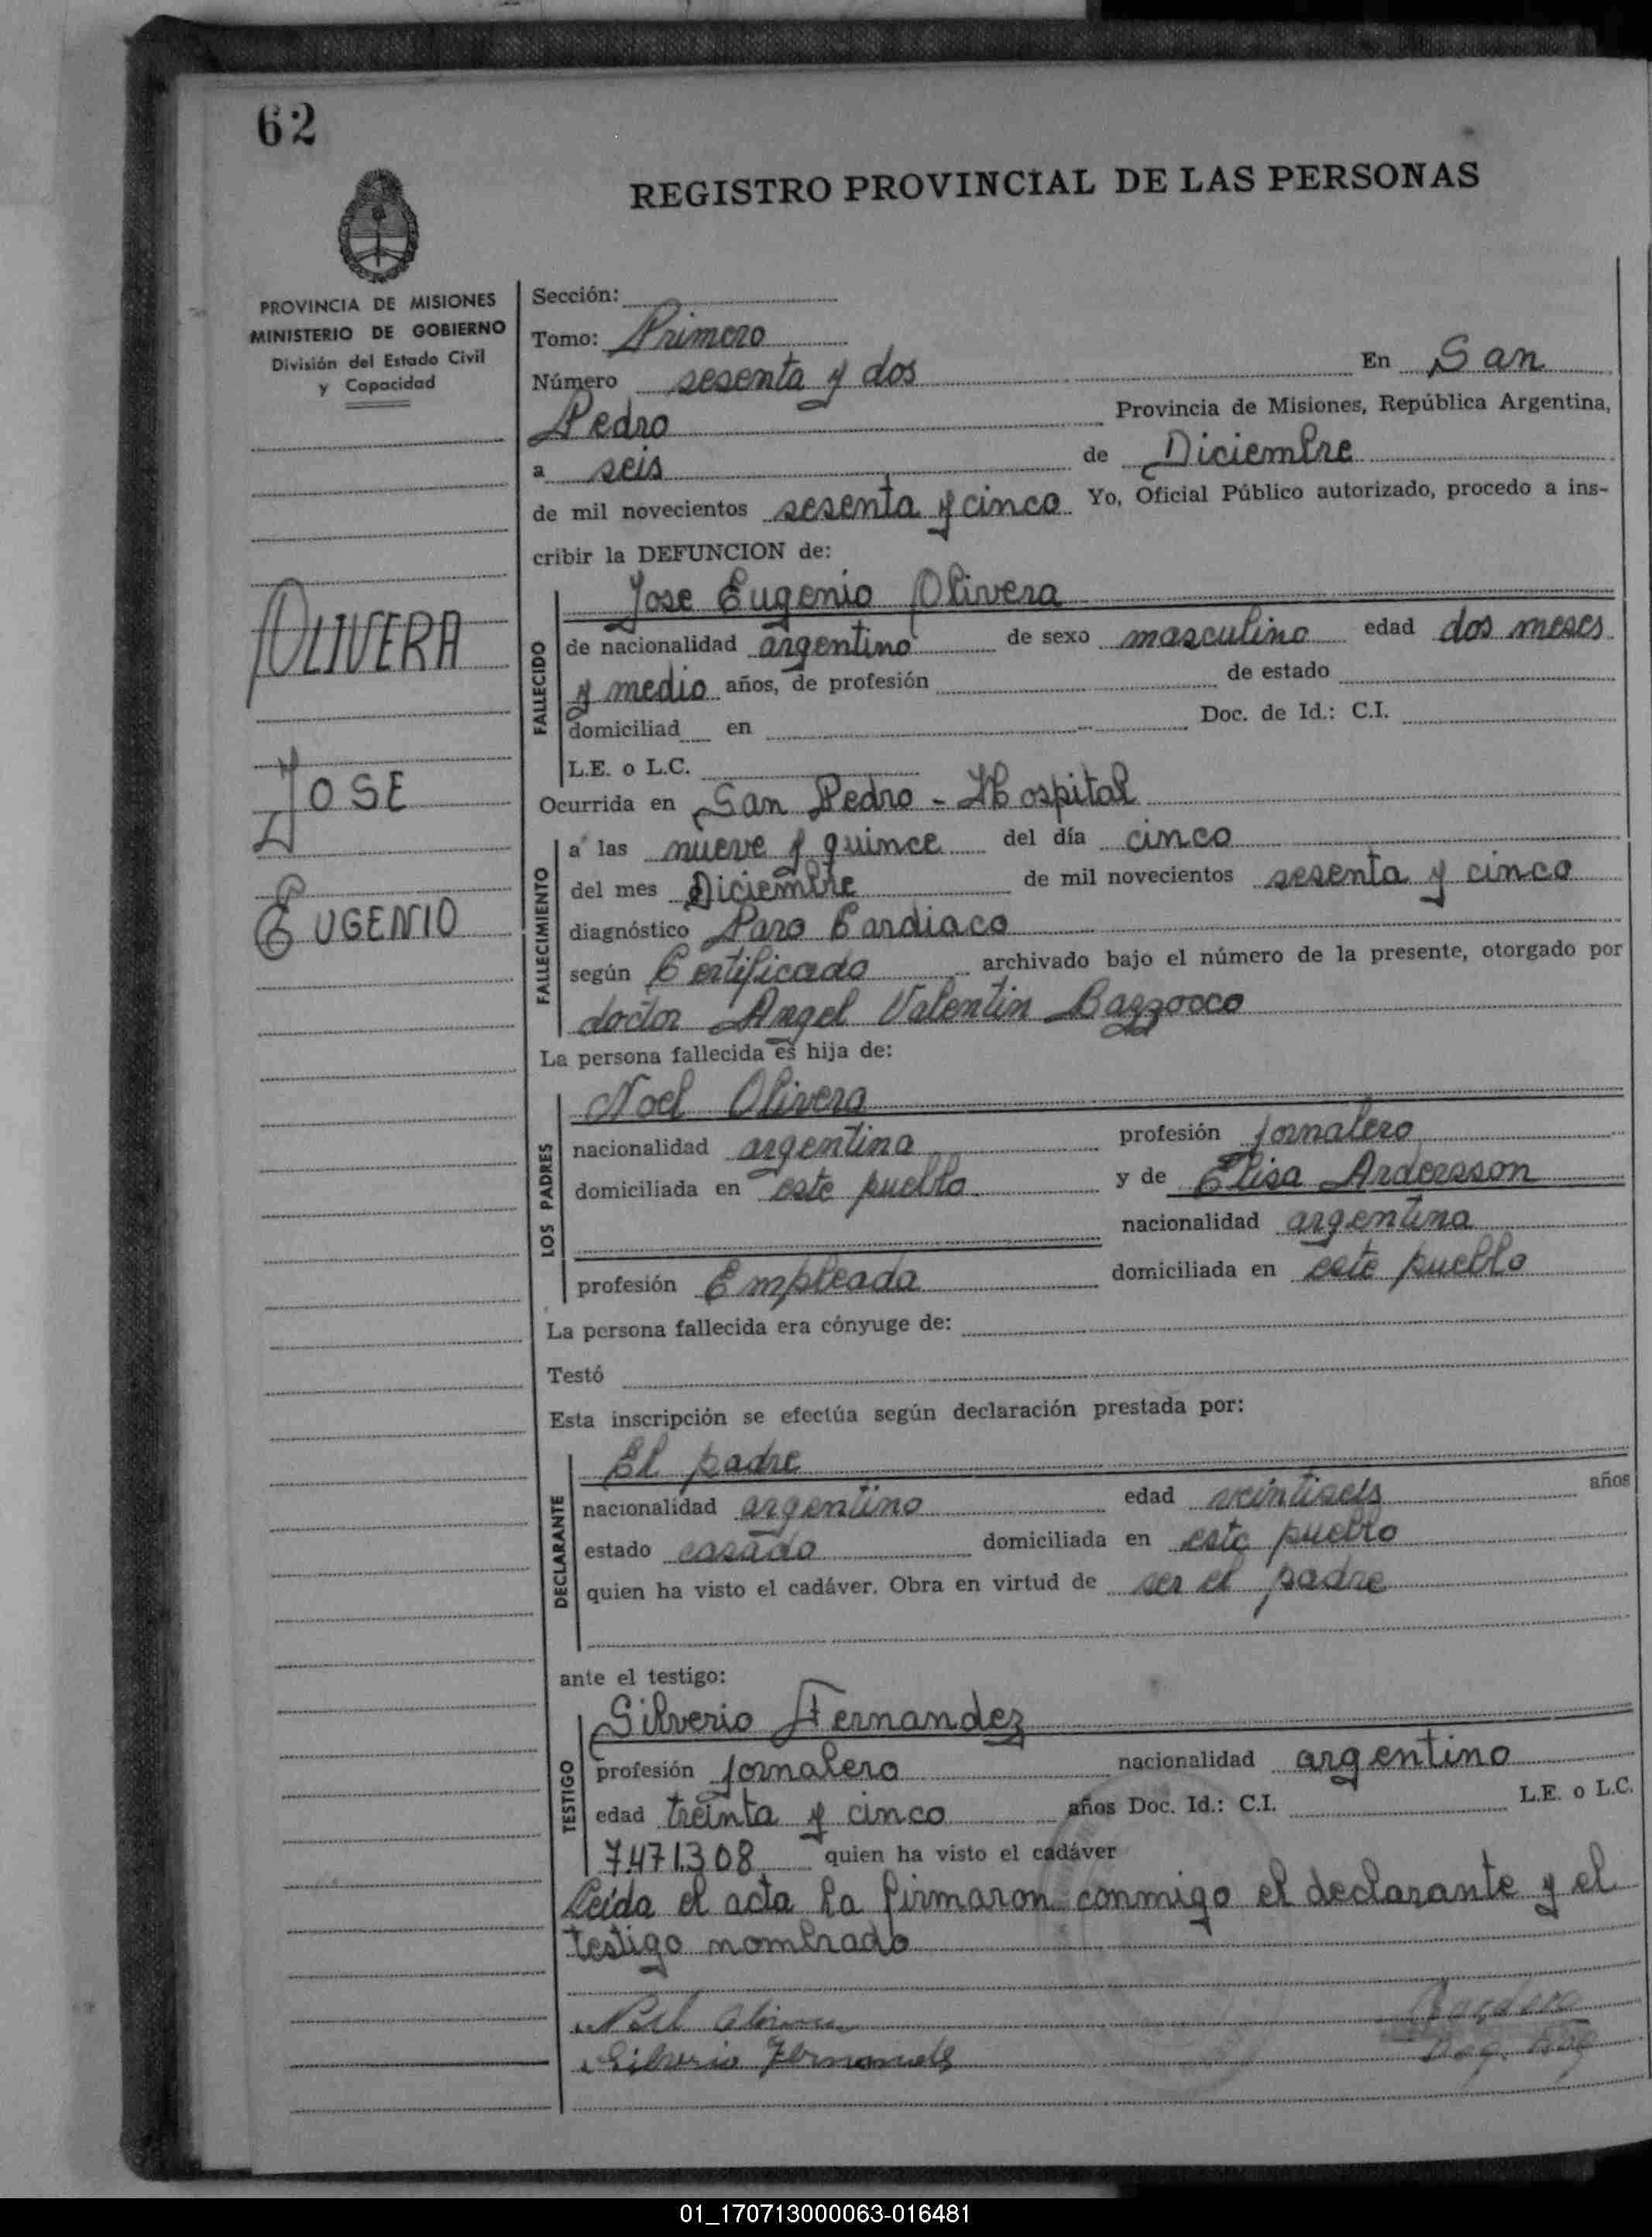 62
REGISTRO PROVINCIAL DE LAS PERSONAS
PROVINCIA DE MISIONES
MINISTERIO DE GOBIERNO
División del Estado Civil
y Capacidad
OLIVERA
JOSE
EUGENIO
Sección:
Tomo: Primero
Número sesenta y dos En San
Pedro Provincia de Misiones, República Argentina,
a seis de Diciembre
de mil novecientos sesenta y cinco Yo, Oficial Público autorizado, procedo a ins-
cribir la DEFUNCION de:
FALLECIDO
Jose Eugenio Olivera
de nacionalidad argentino de sexo masculino edad dos meses
y medio años, de profesión de estado
domiciliad en Doc. de Id.: C.I.
L.E. o L.C.
Ocurrida en San Pedro - Hospital
FALLECIMIENTO
a las nueve y quince del día cinco
del mes Diciembre de mil novecientos sesenta y cinco
diagnóstico Paro Cardiaco
según Certificado archivado bajo el número de la presente, otorgado por
doctor Angel Valentin Bazzocco
La persona fallecida es hija de:
LOS PADRES
Noel Olivera
nacionalidad argentina profesión jornalero
domiciliada en este pueblo y de Elisa Andersson
nacionalidad argentina
profesión Empleada domiciliada en este pueblo
La persona fallecida era cónyuge de:
Testó
Esta inscripción se efectúa según declaración prestada por:
DECLARANTE
El padre
nacionalidad argentino edad veintiseis años
estado casado domiciliada en este pueblo
quien ha visto el cadáver. Obra en virtud de ser el padre
ante el testigo:
TESTIGO
Silverio Fernandez
profesión jornalero nacionalidad argentino
edad treinta y cinco años Doc. Id.: C.I. L.E. o L.C.
7.471.308 quien ha visto el cadáver
Leída el acta la firmaron conmigo el declarante y el
testigo nombrado
Silverio Fernandes
01_170713000063-016481